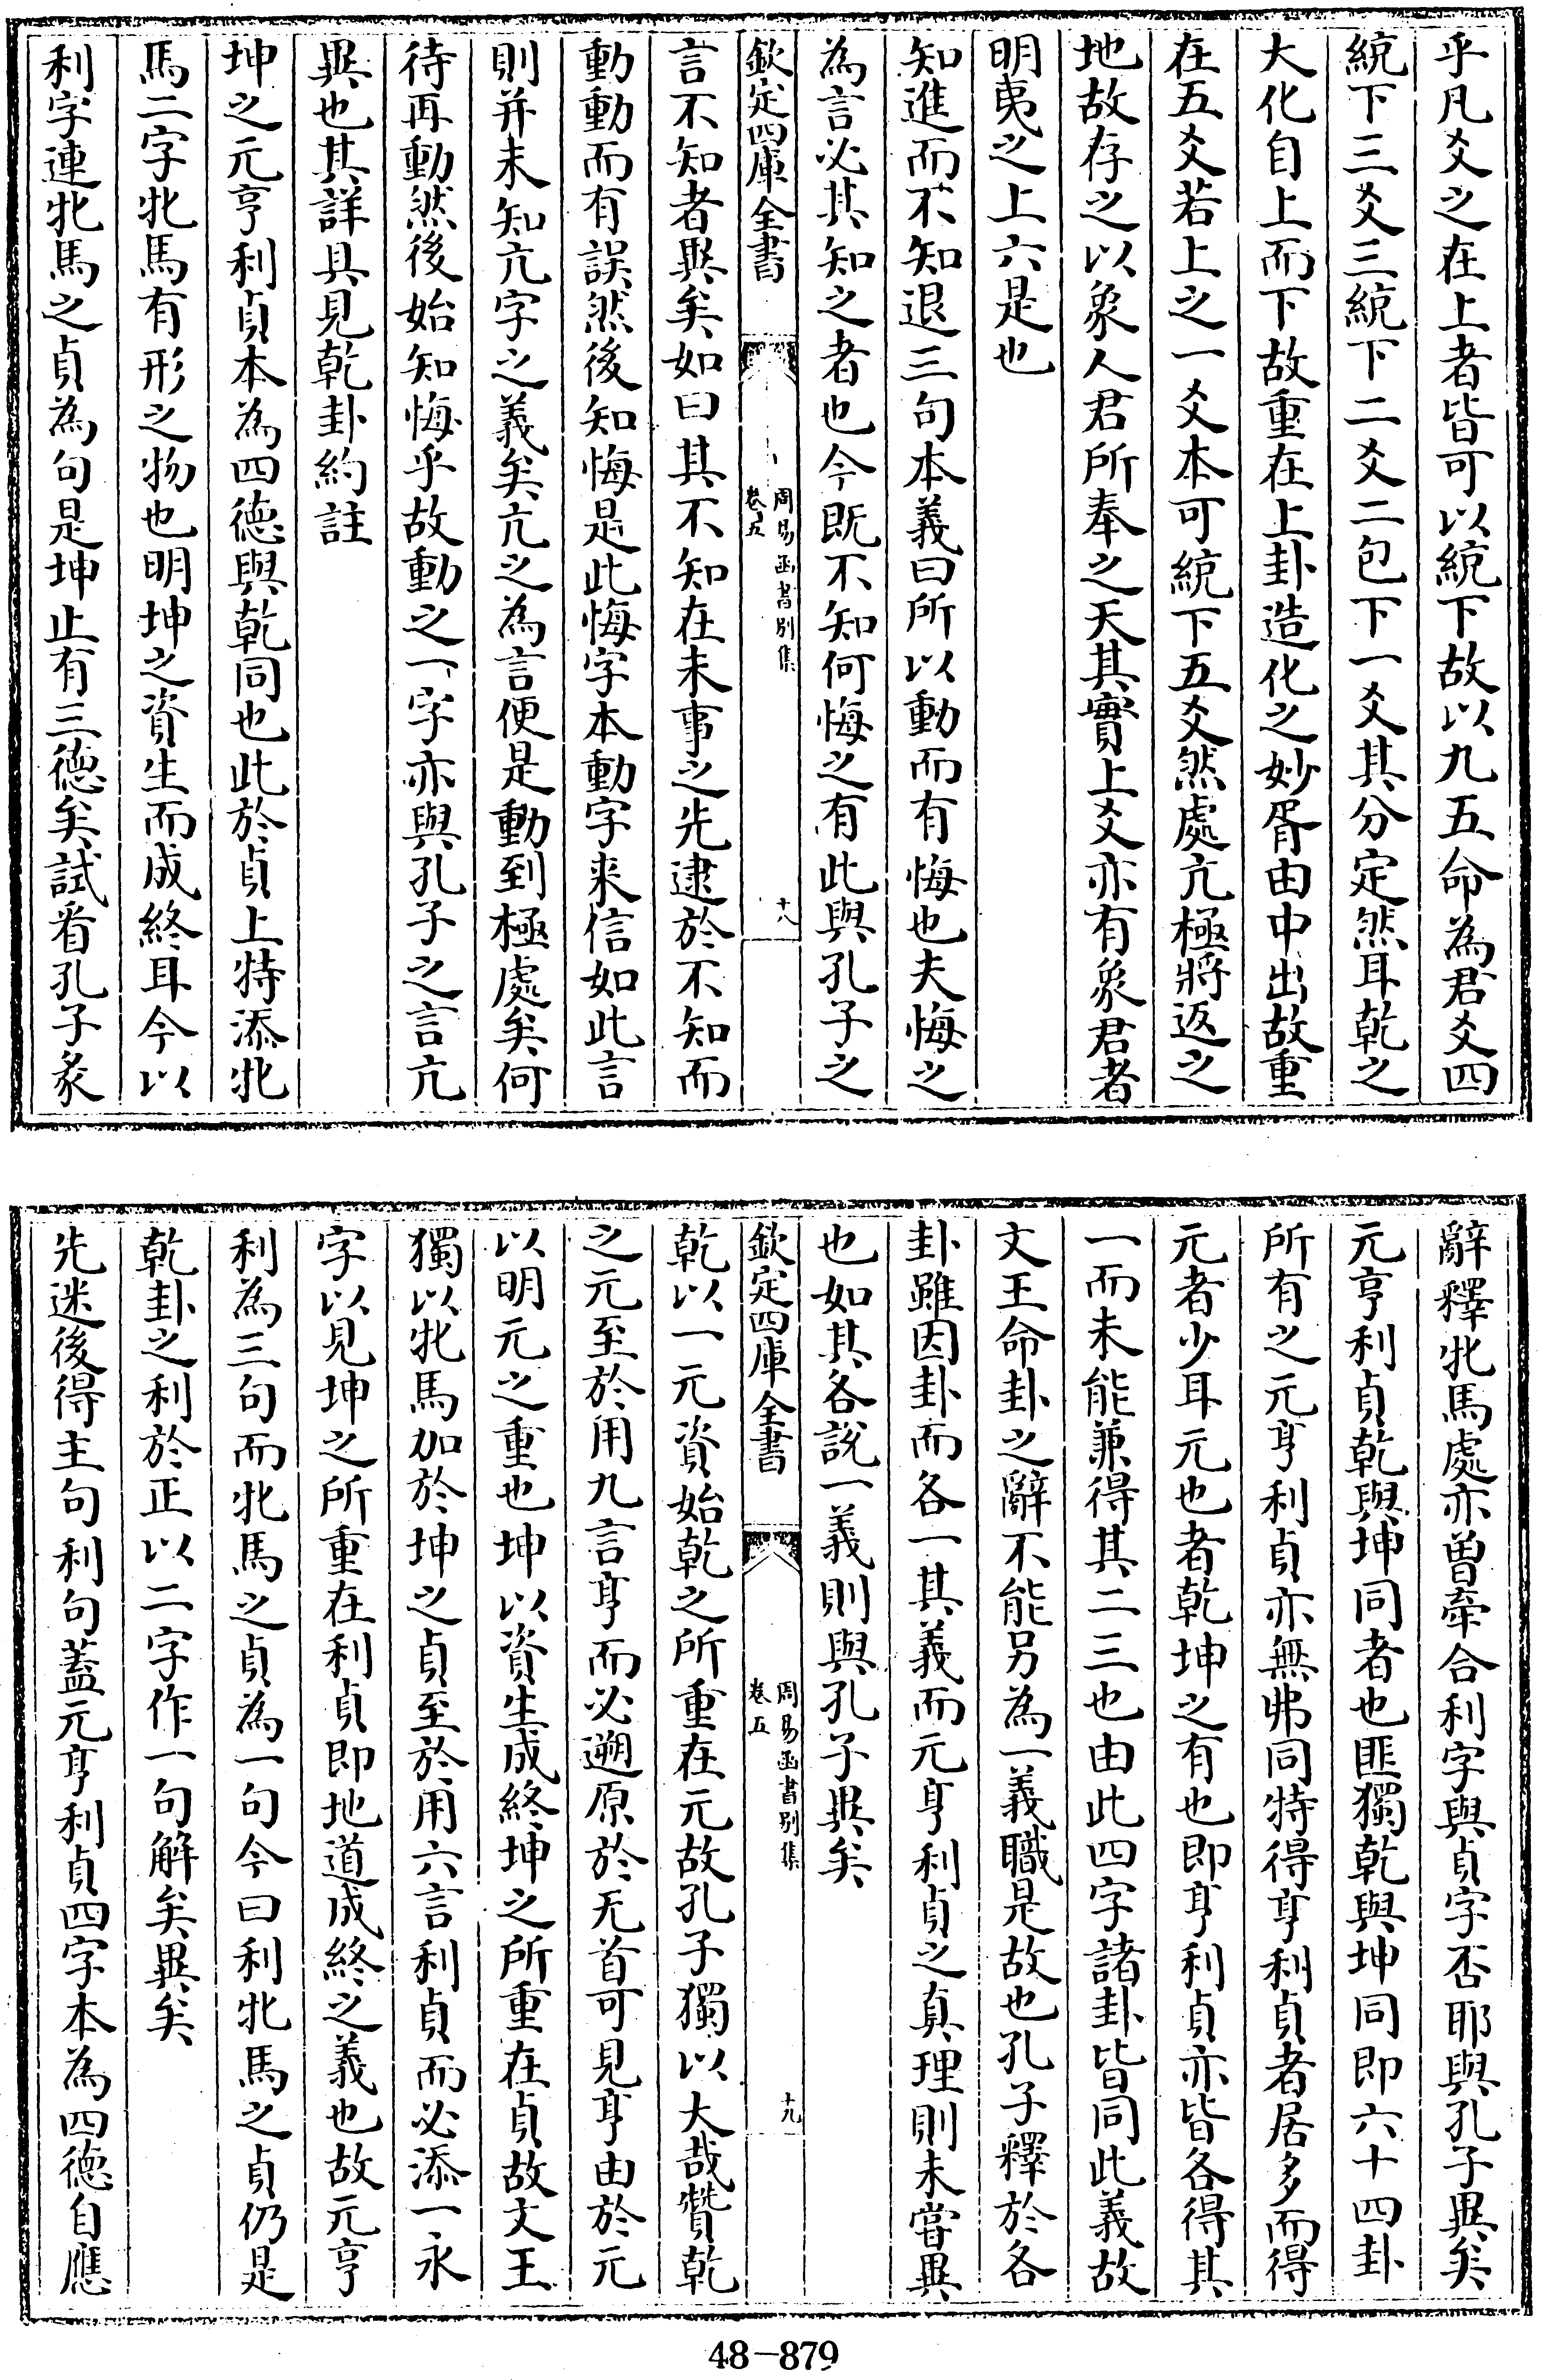 乎凡爻之在上者皆可以統下故以九五命為君爻四
統下三爻三統下二爻二包下一爻其分定然耳乾之
大化自上而下故重在上卦造化之妙胥由中出故重
在五爻若上之一爻本可統下五爻然處亢極將返之
地故存之以象人君所奉之天其實上爻亦有象君者
明夷之上六是也
知進而不知退三句本義曰所以動而有悔也夫悔之
為言必其知之者也今既不知何悔之有此與孔子之
欽定四庫全書
周易函書別集
卷五
十八
言不知者異矣如曰其不知在未事之先逮於不知而
動動而有誤然後知悔是此悔字本動字来信如此言
則并未知亢字之義矣亢之為言便是動到極處矣何
待再動然後始知悔乎故動之一字亦與孔子之言亢
異也其詳具見乾卦約註
坤之元亨利貞本為四德與乾同也此於貞上特添牝
馬二字牝馬有形之物也明坤之資生而成終耳今以
利字連牝馬之貞為句是坤止有三德矣試看孔子彖
辭釋牝馬處亦曾牽合利字與貞字否耶與孔子異矣
元亨利貞乾與坤同者也匪獨乾與坤同即六十四卦
所有之元亨利貞亦無弗同特得亨利貞者居多而得
元者少耳元也者乾坤之有也即亨利貞亦皆各得其
一而未能兼得其二三也由此四字諸卦皆同此義故
文王命卦之辭不能另為一義職是故也孔子釋於各
卦雖因卦而各一其義而元亨利貞之真理則未嘗異
也如其各說一義則與孔子異矣
欽定四庫全書
周易函書別集
卷五
十九
乾以一元資始乾之所重在元故孔子獨以大哉贊乾
之元至於用九言亨而必遡原於无首可見亨由於元
以明元之重也坤以資生成終坤之所重在貞故文王
獨以牝馬加於坤之貞至於用六言利貞而必添一永
字以見坤之所重在利貞即地道成終之義也故元亨
利為三句而牝馬之貞為一句今曰利牝馬之貞仍是
乾卦之利於正以二字作一句解矣異矣
先迷後得主句利句蓋元亨利貞四字本為四德自應
48-879